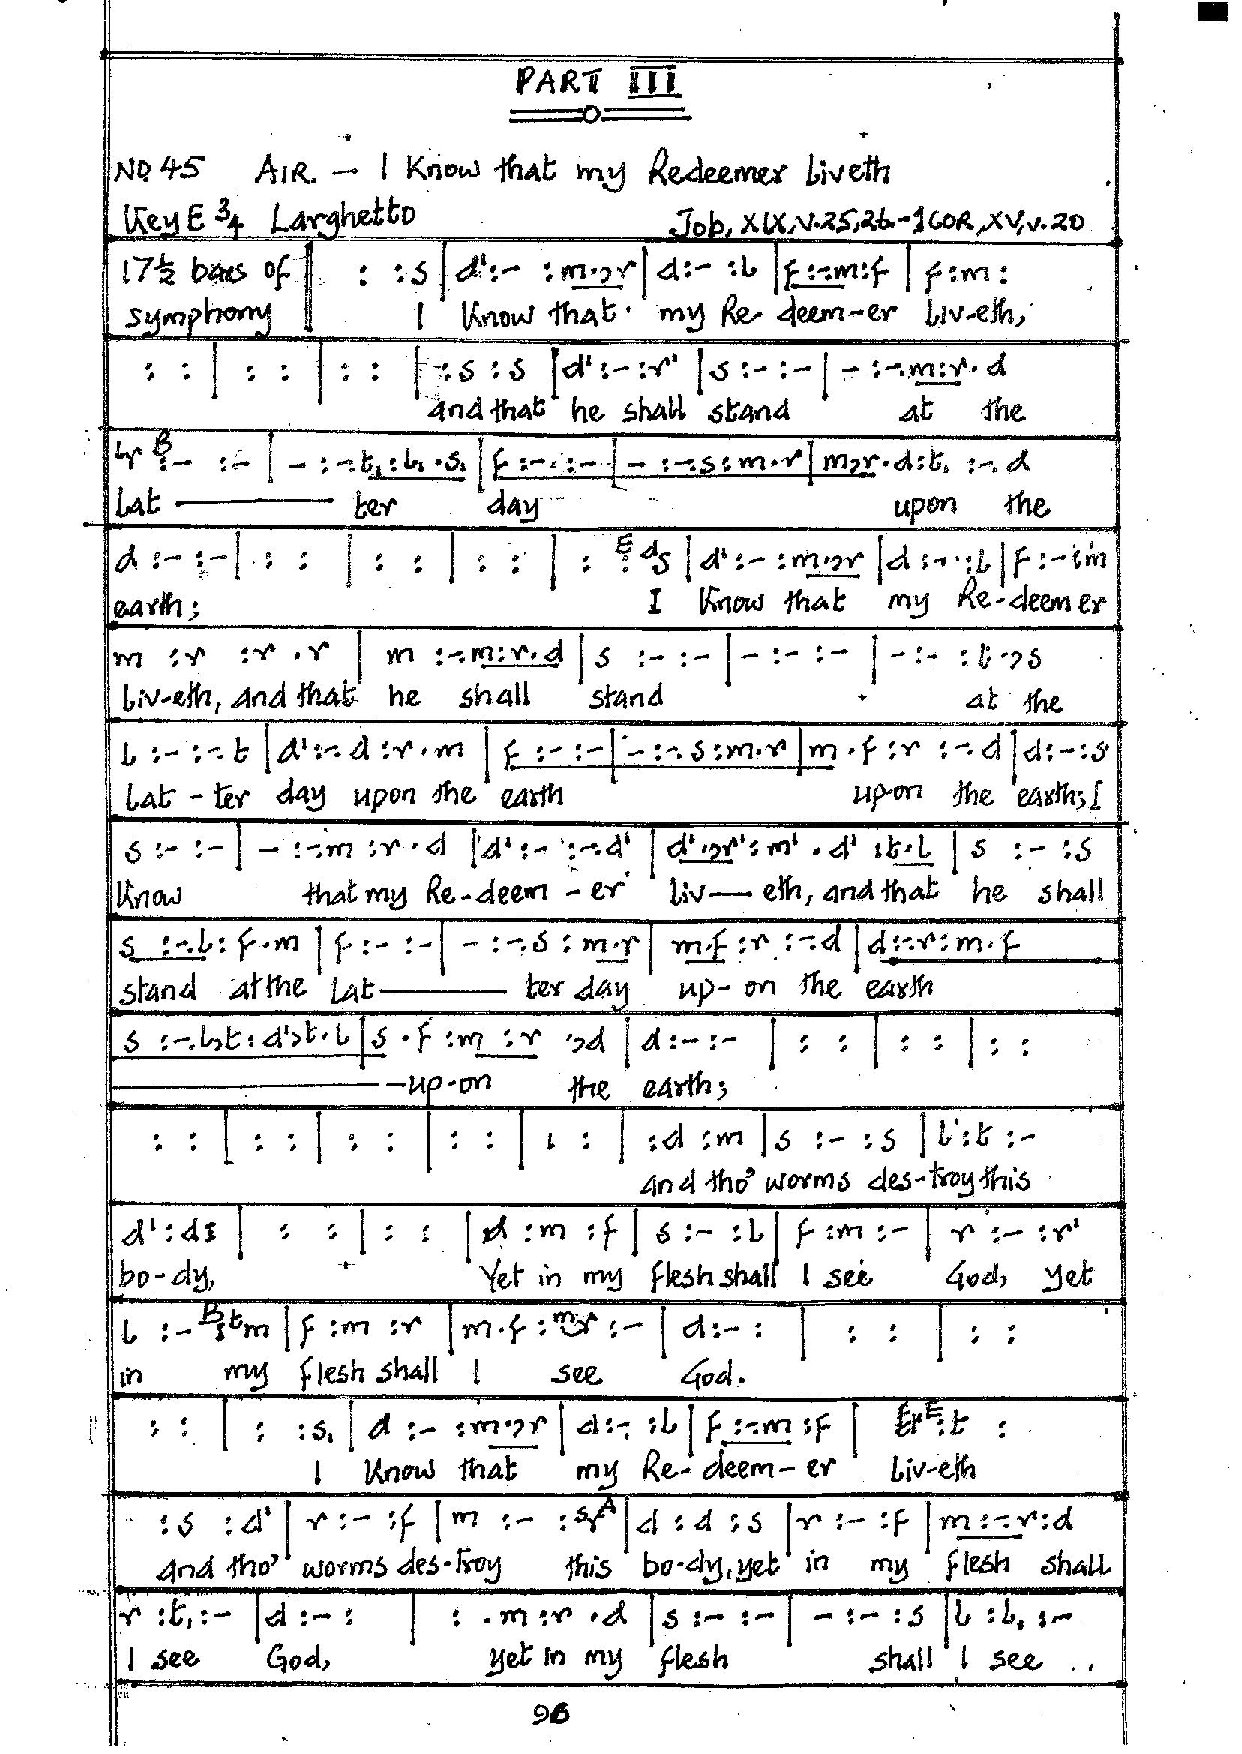 PART III
No. 45 AIR. – I Know that my Redeemer Liveth
Key E 3/4 Larghetto Job, XIX, v.25,26.-1 COR, XV, v.20
17½ bars of symphony || : :s | d' :– :m.,r | d :– :l | f :–.m :f | f :m :
I Know that my Re- deem-er Liv-eth,
: : | : : | : : | :s :s | d' :– :r' | s :– :– | – :–.m :r.d
and that he shall stand at the
l,r B :– :– | – :–.t, :l,.s, | f :– :– | – :–.s :m.r | m,r.d :t, :–.d
Lat ter day upon the
d :– :– | : : | : : | : : | : E : ds | d' :– :m.,r | d :– :l | f :– :m
earth; I Know that my Re-deemer
m :r :r.r | m :–.m :r.d | s :– :– | – :– :– | – :– :t.,s
Liv-eth, and that he shall stand at the
l :– :–.t | d' :–.d :r.m | f :– :– | – :–.s :m.r | m.f :r :–.d | d :– :s
Lat-ter day upon the earth upon the earth; I
s :– :– | – :–.m :r.d | d' :– :–.d' | d'.,r' :m'.d' :t.l | s :– :s
Know that my Re-deem-er liv—eth, and that he shall
s :–.l :f.m | f :– :– | – :–.s :m.r | m.f :r :–.d | d :–.r :m.f
stand at the Lat ter day up-on the earth
s :–.l,t :d',t.l | s.f :m :r .,d | d :– :– | : : | : : | : :
–up-on the earth;
: : | : : | : : | : : | : : | :d :m | s :– :s | l :t :–
and tho' worms des-troy this
d' :ds | : : | : : | d :m :f | s :– :l | f :m :– | r :– :r'
bo-dy, Yet in my flesh shall I see God, yet
l :– B :tm | f :m :r | m.f :mr :– | d :– : | : : | : :
in my flesh shall I see God.
: : | : :s, | d :– :m.,r | d :– :l | f :–.m :f | E :t :
I Know that my Re-deem-er Liv-eth
:s :d' | r :– :f | m :– :sr A | d :d :s | r :– :f | m :–.r :d
and tho' worms des-troy this bo-dy, yet in my flesh shall
r :t, :– | d :– : | : .m :r .d | s :– :– | – :– :s | l :l, :–
I see God, yet in my flesh shall I see ..
96